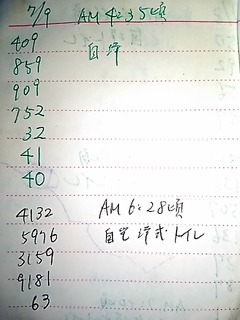 7/9 AM 4:35頃
409
859
909
752
32
41
40
4132 AM 6:28頃
5976 自宅
3159
9181
63